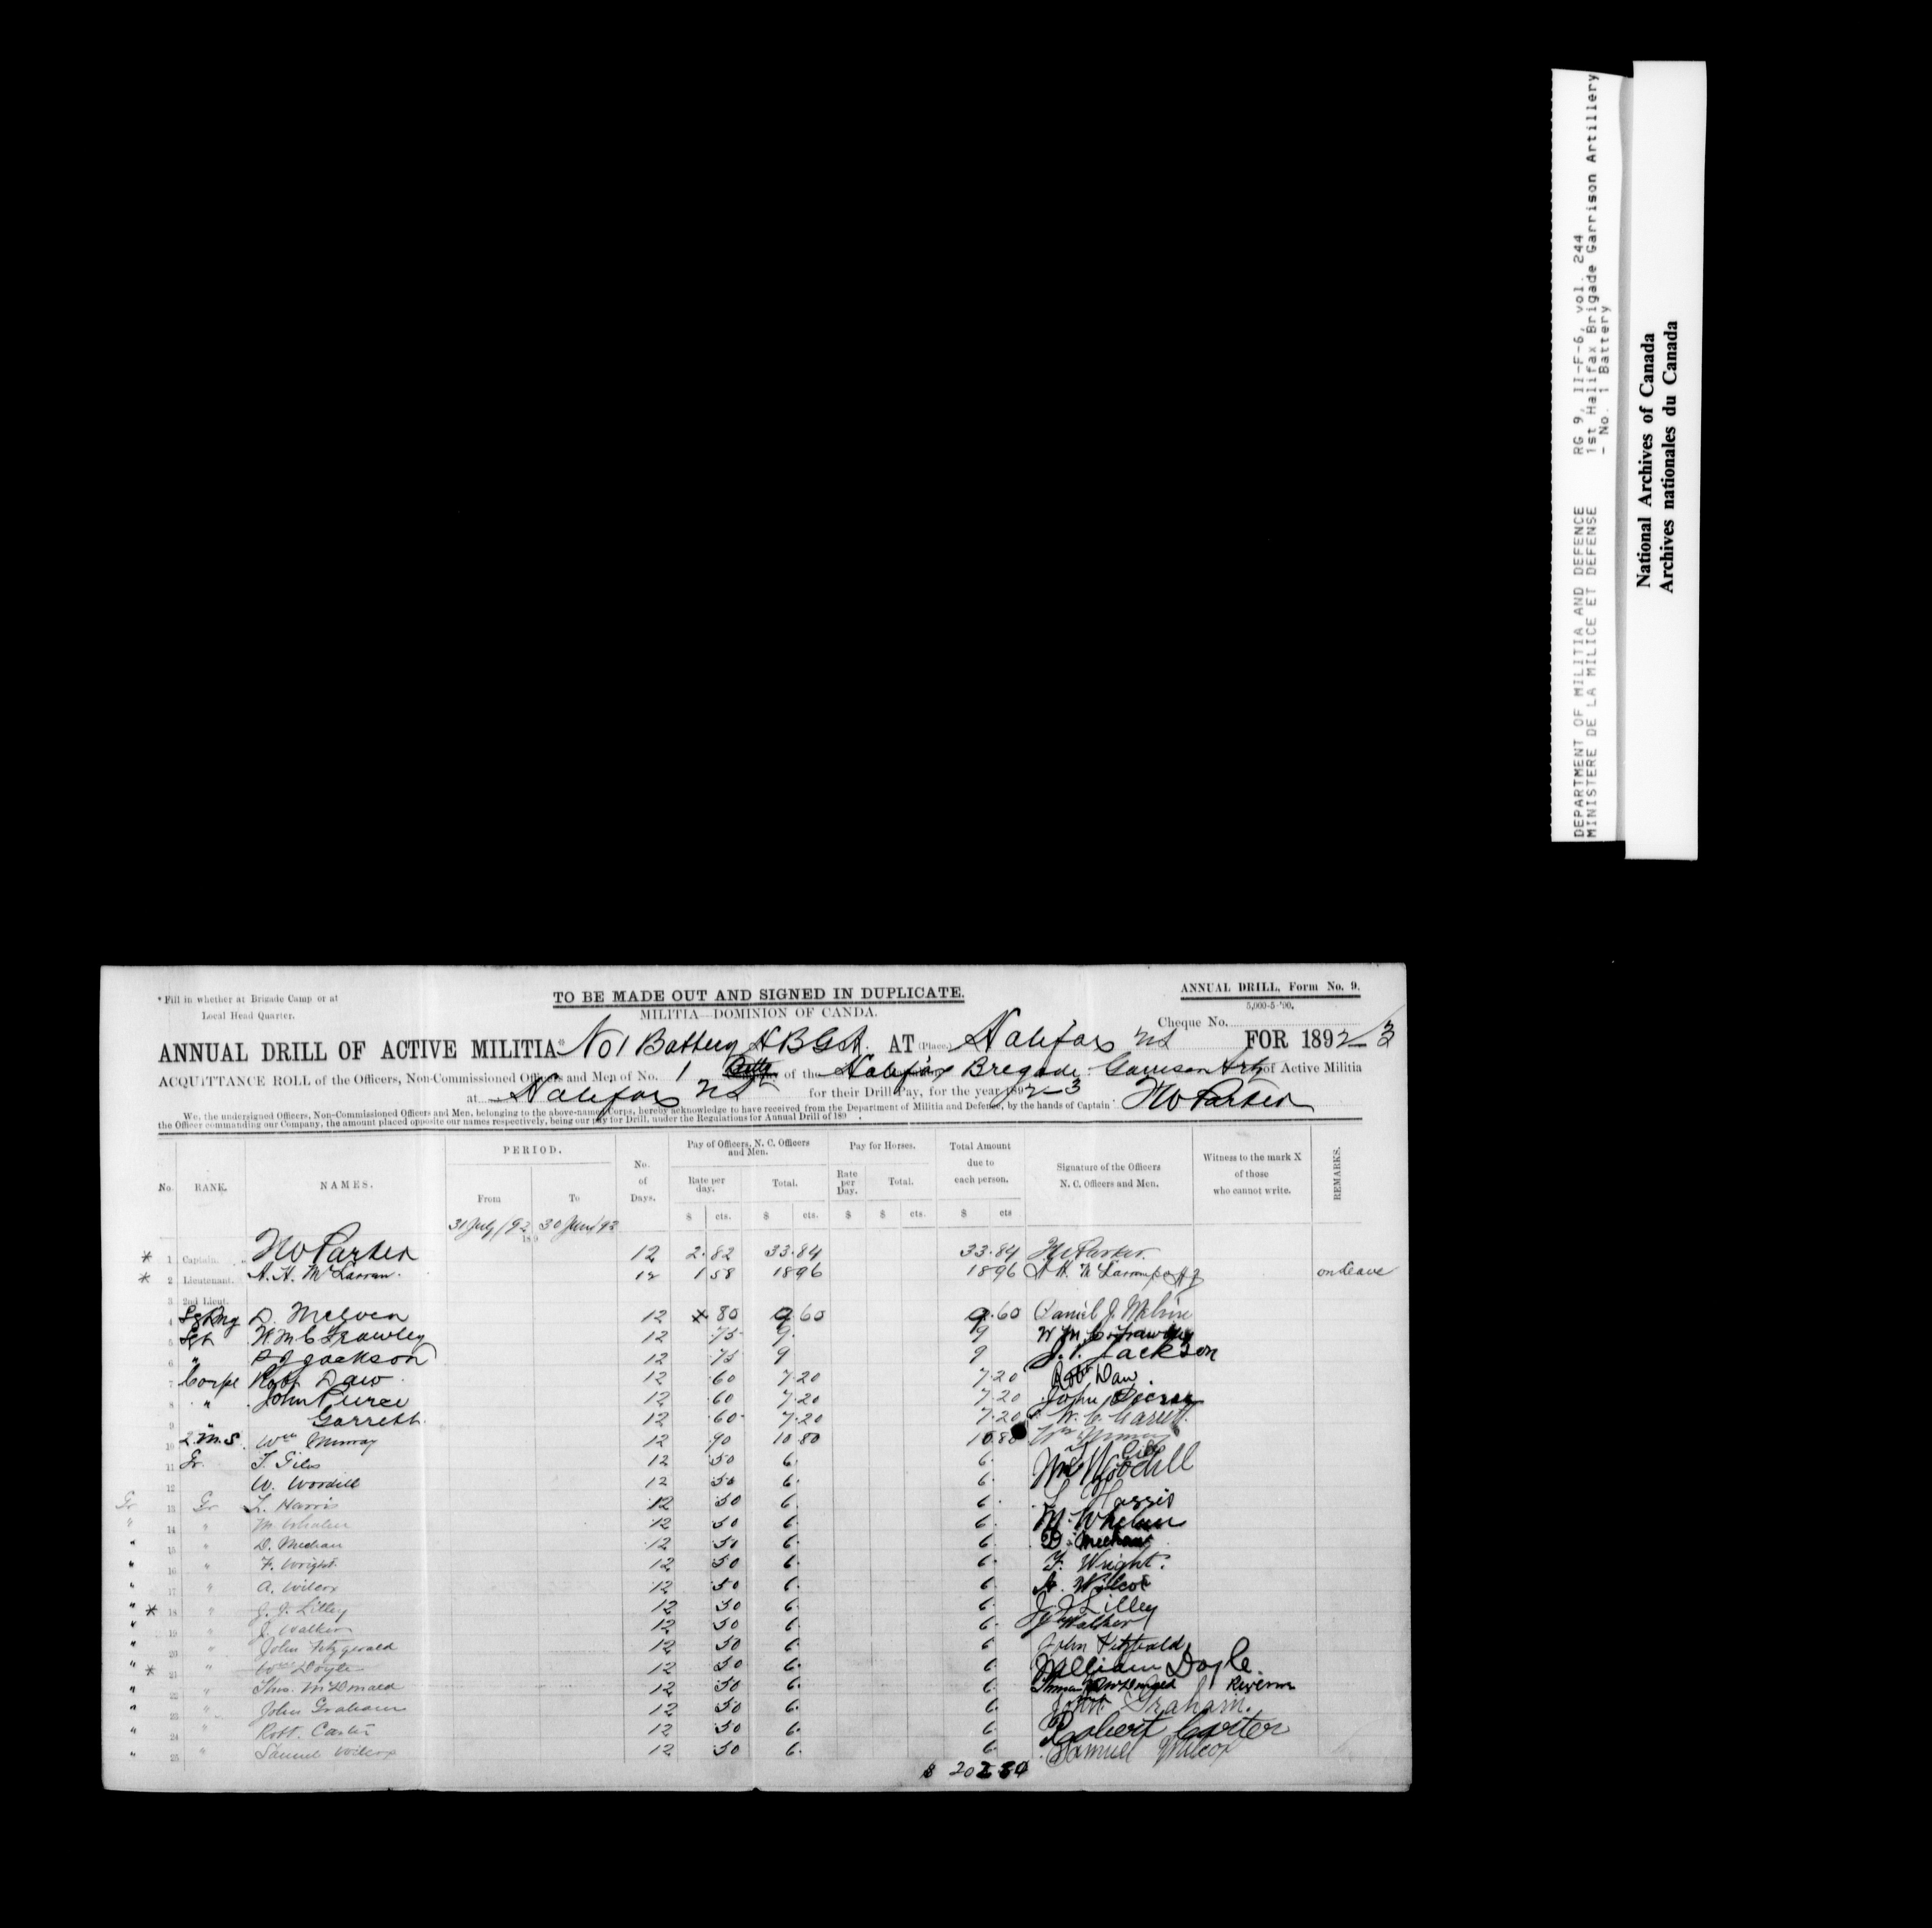 DEPARTMENT OF MILITIA AND DEFENCE RG 9, II-F-6, vol. 244
MINISTERE DE LA MILICE ET DEFENSE 1st Halifax Brigade Garrison Artillery
- No. 1 Battery
National Archives of Canada
Archives nationales du Canada
* Fill in whether at Brigade Camp or at
Local Head Quarter.
TO BE MADE OUT AND SIGNED IN DUPLICATE.
MILITIA—DOMINION OF CANDA.
ANNUAL DRILL, Form No. 9.
5,000-5-'90.
Cheque No.
ANNUAL DRILL OF ACTIVE MILITIA* No 1 Battery H.B.G.A. AT (Place.) Halifax NS FOR 1892-3
ACQUITTANCE ROLL of the Officers, Non-Commissioned Officers and Men of No. 1 Batty of the Halifax Brigade Garrison Arty of Active Militia
at Halifax NS for their Drill Pay, for the year 1892-3
We, the undersigned Officers, Non-Commissioned Officers and Men, belonging to the above-named Corps, hereby acknowledge to have received from the Department of Militia and Defense, by the hands of Captain
the Officer commanding our Company, the amount placed opposite our names respectively, being our pay for Drill, under the Regulations for Annual Drill of 189 .
No. RANK. NAMES. PERIOD. From To No. of Days. Pay of Officers, N. C. Officers and Men. Rate per day. Total. Pay for Horses. Rate per Day. Total. Total Amount due to each person. Signature of the Officers N. C. Officers and Men. Witness to the mark X of those who cannot write. REMARKS.
$ cts. $ cts. $ $ cts. $ cts
31 July/92 189 30 June/93
* 1 Captain. Parker 12 2.82 33.84 33.84 Parker.
* 2 Lieutenant. A. H. 12 1 58 18 96 18 96 A H on leave
3 2nd Lieut.
4 D. 12 80 9 60 9.60 Daniel J.
5 Sgt W.M.C Frawley 12 .75 9. 9 W M C Frawley
6 " Jackson 12 .75 9 9 Jackson
7 Corpl Robt Daw 12 .60 7.20 7.20 Robt Daw.
8 " John Pierce 12 .60 7.20 7.20 John
9 " 12 .60 7.20 7.20 W. C.
10 Q.M.S. Wm Murray 12 .90 10.80 10.80 Wm
11 Gr. Giles 12 .50 6. 6. Giles
12 W. Woodill 12 .50 6. 6. Wm Woodill
Gr 13 Gr L. Harris 12 .50 6. 6. L Harris
" 14 " M. Whelan 12 .50 6. 6. M. Whelan
" 15 " D. Meehan 12 .50 6. 6. D. Meehan
" 16 " F. Wright. 12 .50 6. 6. F. Wright.
" 17 " A. Wilcox 12 .50 6. 6. A. Wilcox
" * 18 " J. J. Lilley 12 .50 6. 6. J J Lilley
" 19 " J. Walker 12 .50 6. 6. J Walker
" 20 " John Fitzgerald 12 .50 6. 6 John
" * 21 " Wm Doyle 12 .50 6. 6. William Doyle.
" 22 " Thos. McDonald 12 .50 6. 6. McDonald
" 23 " John Graham 12 .50 6. 6. John Graham.
" 24 " Robt. Carter 12 .50 6. 6. Robert Carter
" 25 " Samuel Wilcox 12 .50 6. 6. Samuel Wilcox
$ 202